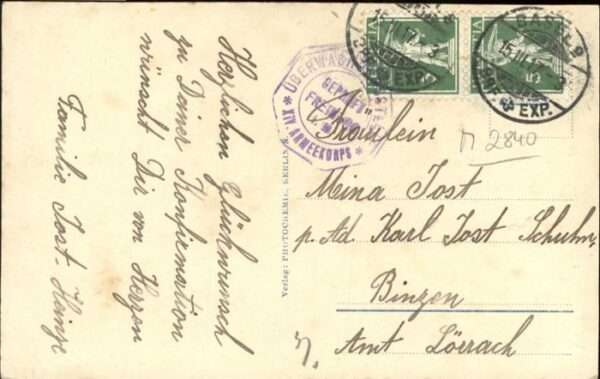 Herzlichen Glückwunsch
zu Deiner Konfirmation
wünscht Dir von Herzen
Familie Jost-Heinze
Verlag: PHOTOCHEMIE, BERLIN
ÜBERWACHUNGSSTELLE
GEPRÜFT
FREI
XIV. ARMEEKORPS
BASEL 2
15.III.17
BRF. EXP.
5
BASEL 2
15.III.17
BRF. EXP.
5
Fräulein
Π 2840
Mina Jost
p. Ad. Karl Jost Schuhm.
Binzen
Amt Lörrach